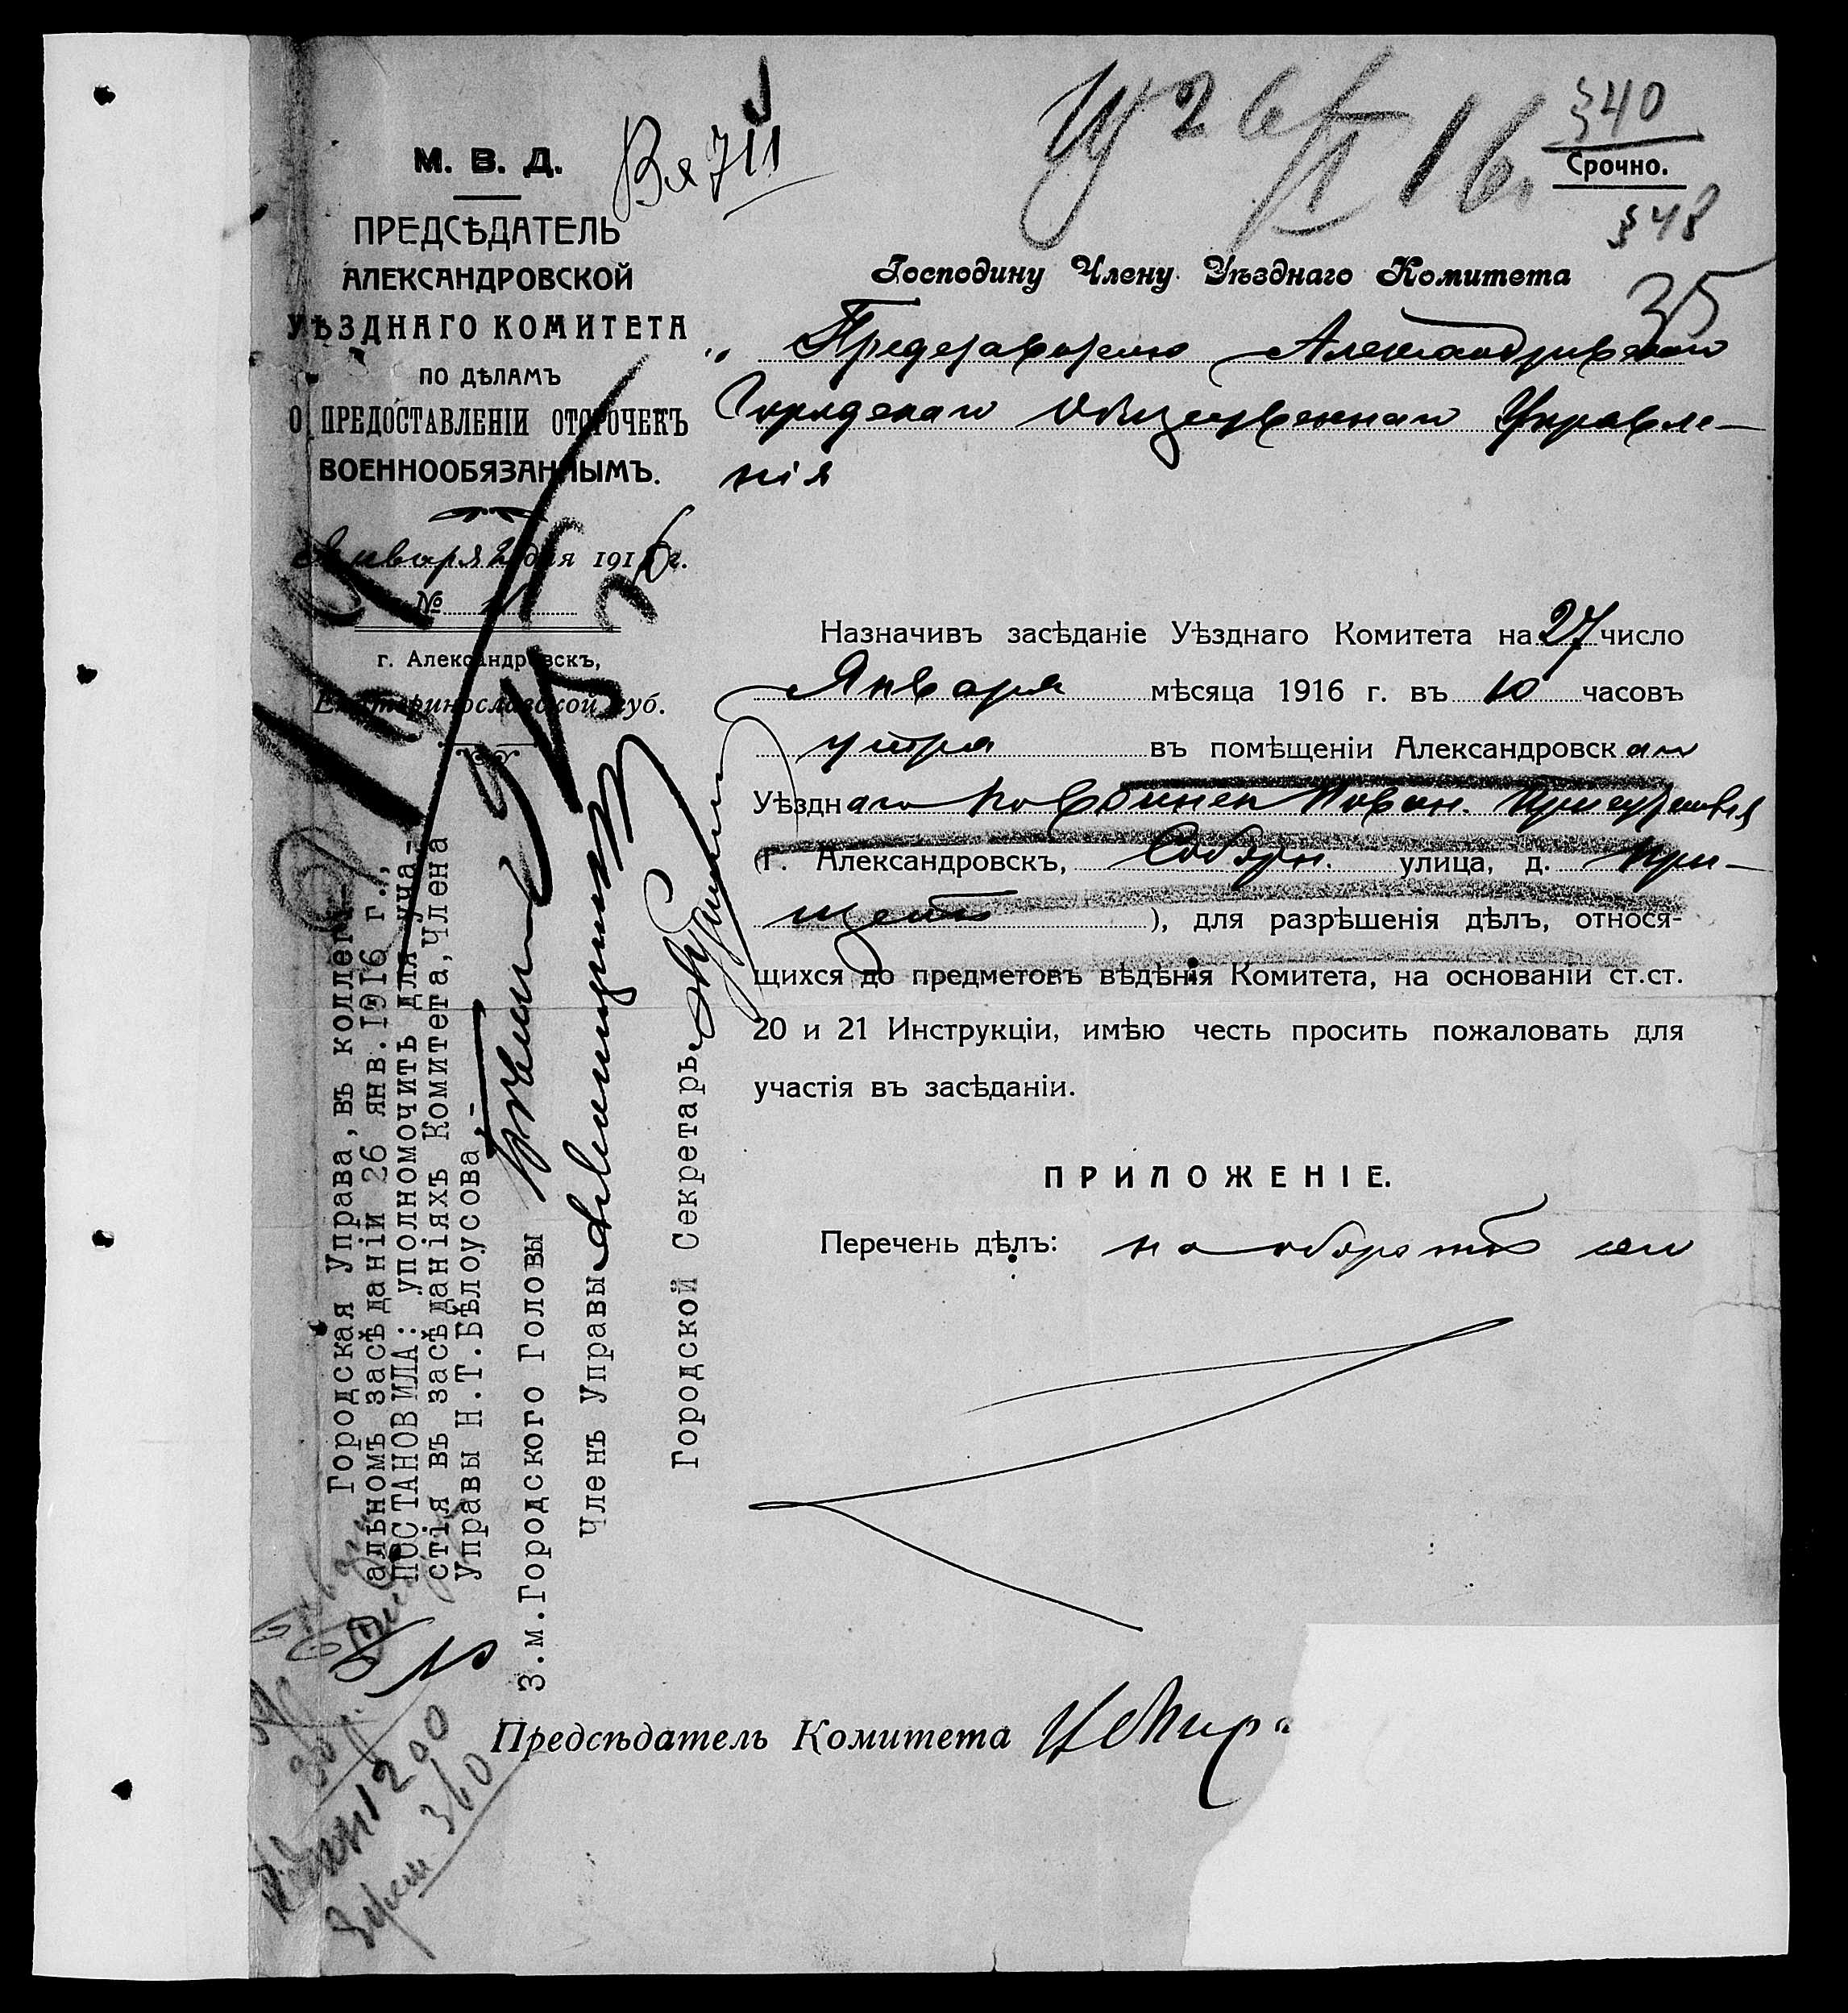 М. В. Д.
ПРЕДСѢДАТЕЛЬ
АЛЕКСАНДРОВСКОЙ
УѢЗДНАГО КОМИТЕТА
ПО ДѢЛАМЪ
О ПРЕДОСТАВЛЕНІИ ОТСРОЧЕКЪ
ВОЕННООБЯЗАННЫМЪ.
Января 2 дня 1916 г.
№
г. Александровскъ,
Екатеринославской губ.
Вх 711
26 I 16.
§40
Срочно.
§48
35
Господину Члену Уѣзднаго Комитета
" Представителю Александровскаго
Городскаго Общественнаго Управле-
нія
Назначивъ засѣданіе Уѣзднаго Комитета на 27 число
Января мѣсяца 1916 г. въ 10 часовъ
утра въ помѣщеніи Александровскаго
Уѣзднаго по воинск. Повин. Присутствія
(г. Александровскъ, Соборн. улица, д.
), для разрѣшенія дѣлъ, относя-
щихся до предметовъ вѣдѣнія Комитета, на основаніи ст.ст.
20 и 21 Инструкціи, имѣю честь просить пожаловать для
участія въ засѣданіи.
ПРИЛОЖЕНІЕ.
Перечень дѣлъ: на оборотѣ сего
Предсѣдатель Комитета
Городская Управа, въ коллегі-
альномъ засѣданіи 26 янв. 1916 г.,
ПОСТАНОВИЛА: уполномочить для уча-
стія въ засѣданіяхъ Комитета, Члена
Управы Н.Т.Бѣлоусова.-
З.м.Городского Головы
Членъ Управы
Городской Секретарь
1200
360